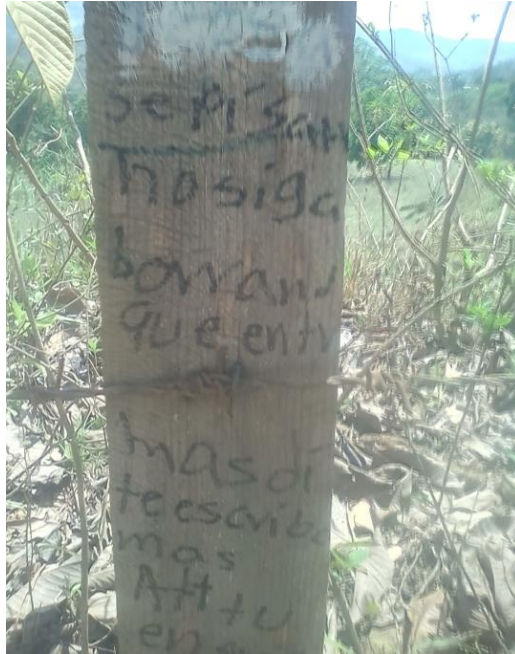 no siga
borrand
que entr
mas di
te escribo
mas
Att tu
en